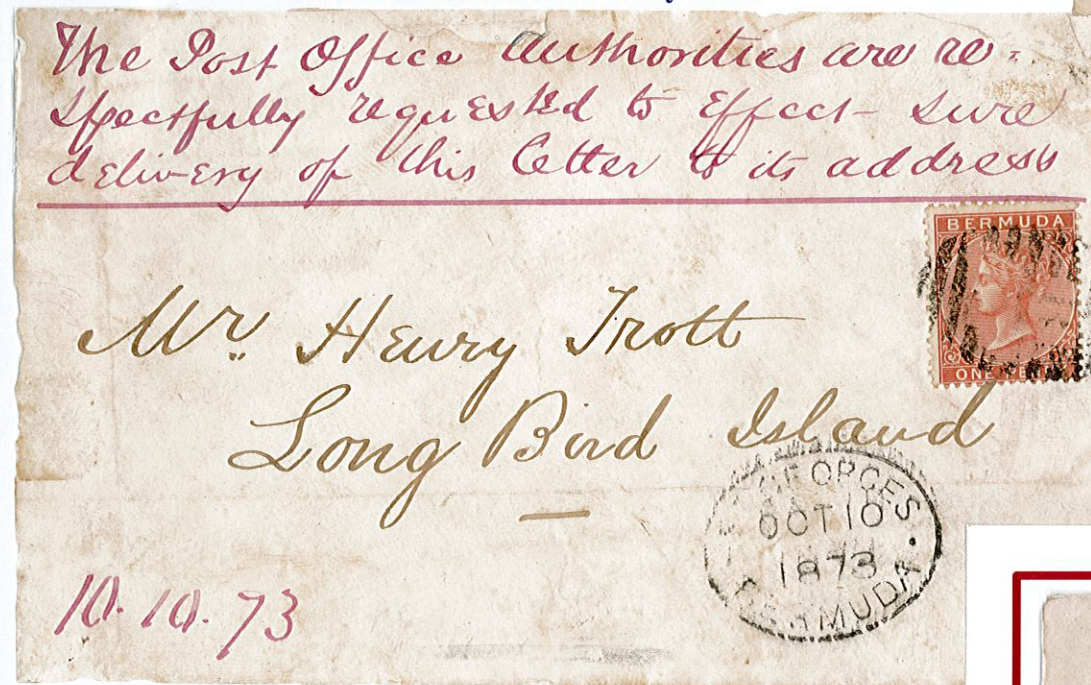 The Post Office Authorities are re=
spectfully requested to Effect sure
delivery of this letter to its address
BERMUDA
ONE
Mr. Henry Trott
Long Bird Island
GEORGES
OCT 10
1873
BERMUDA
10.10.73